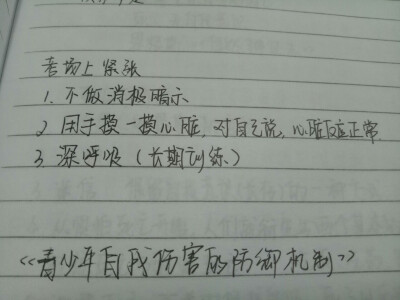 考场上紧张
1. 不做消极暗示
2 用手摸一摸心脏，对自己说，心脏反应正常.
3. 深呼吸（长期训练）
《青少年自我伤害的防御机制》